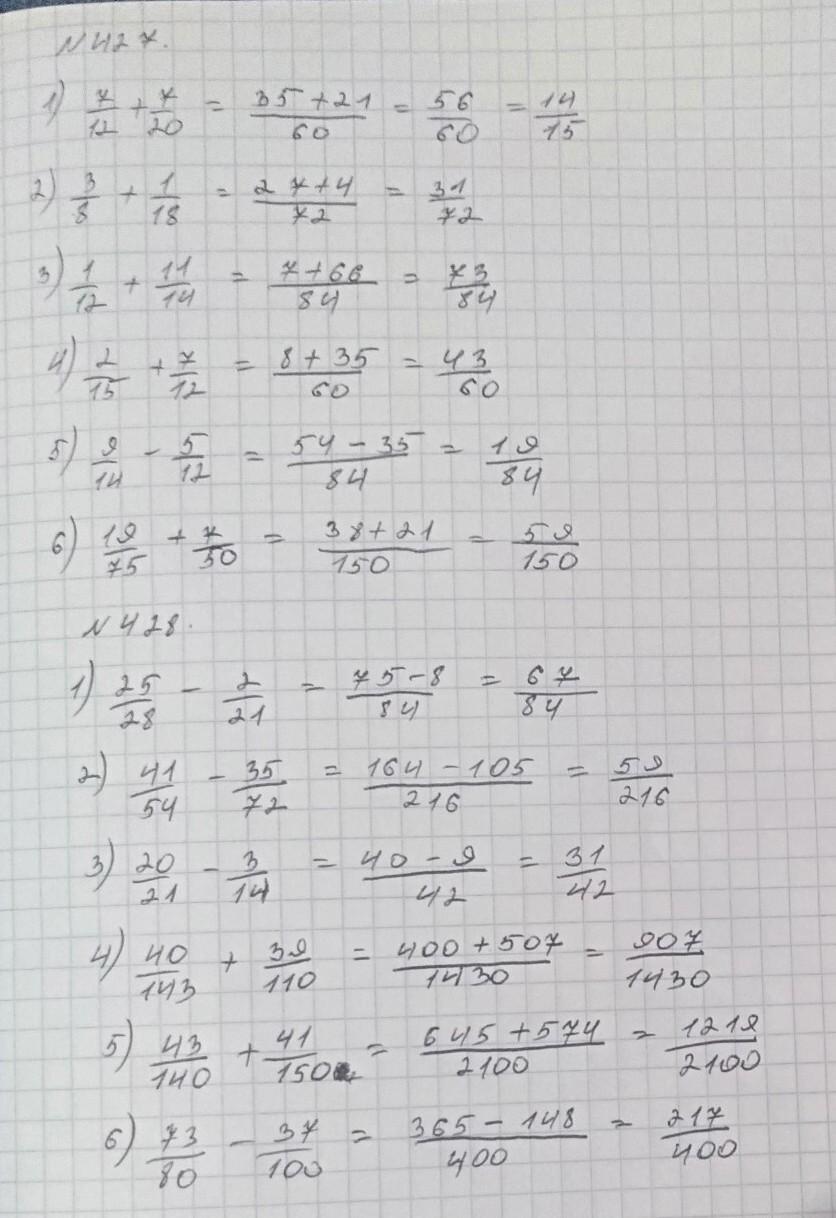 N 427.
1) 7/12 + 7/20 = 35+21/60 = 56/60 = 14/15
2) 3/8 + 1/18 = 27+4/72 = 31/72
3) 1/12 + 11/14 = 7+66/84 = 73/84
4) 2/15 + 7/12 = 8+35/60 = 43/60
5) 9/14 - 5/12 = 54-35/84 = 19/84
6) 19/75 + 7/50 = 38+21/150 = 59/150
N 428.
1) 25/28 - 2/21 = 75-8/84 = 67/84
2) 41/54 - 35/72 = 164-105/216 = 59/216
3) 20/21 - 3/14 = 40-9/42 = 31/42
4) 40/143 + 39/110 = 400+507/1430 = 907/1430
5) 43/140 + 41/150 = 645+574/2100 = 1219/2100
6) 73/80 - 37/100 = 365-148/400 = 217/400